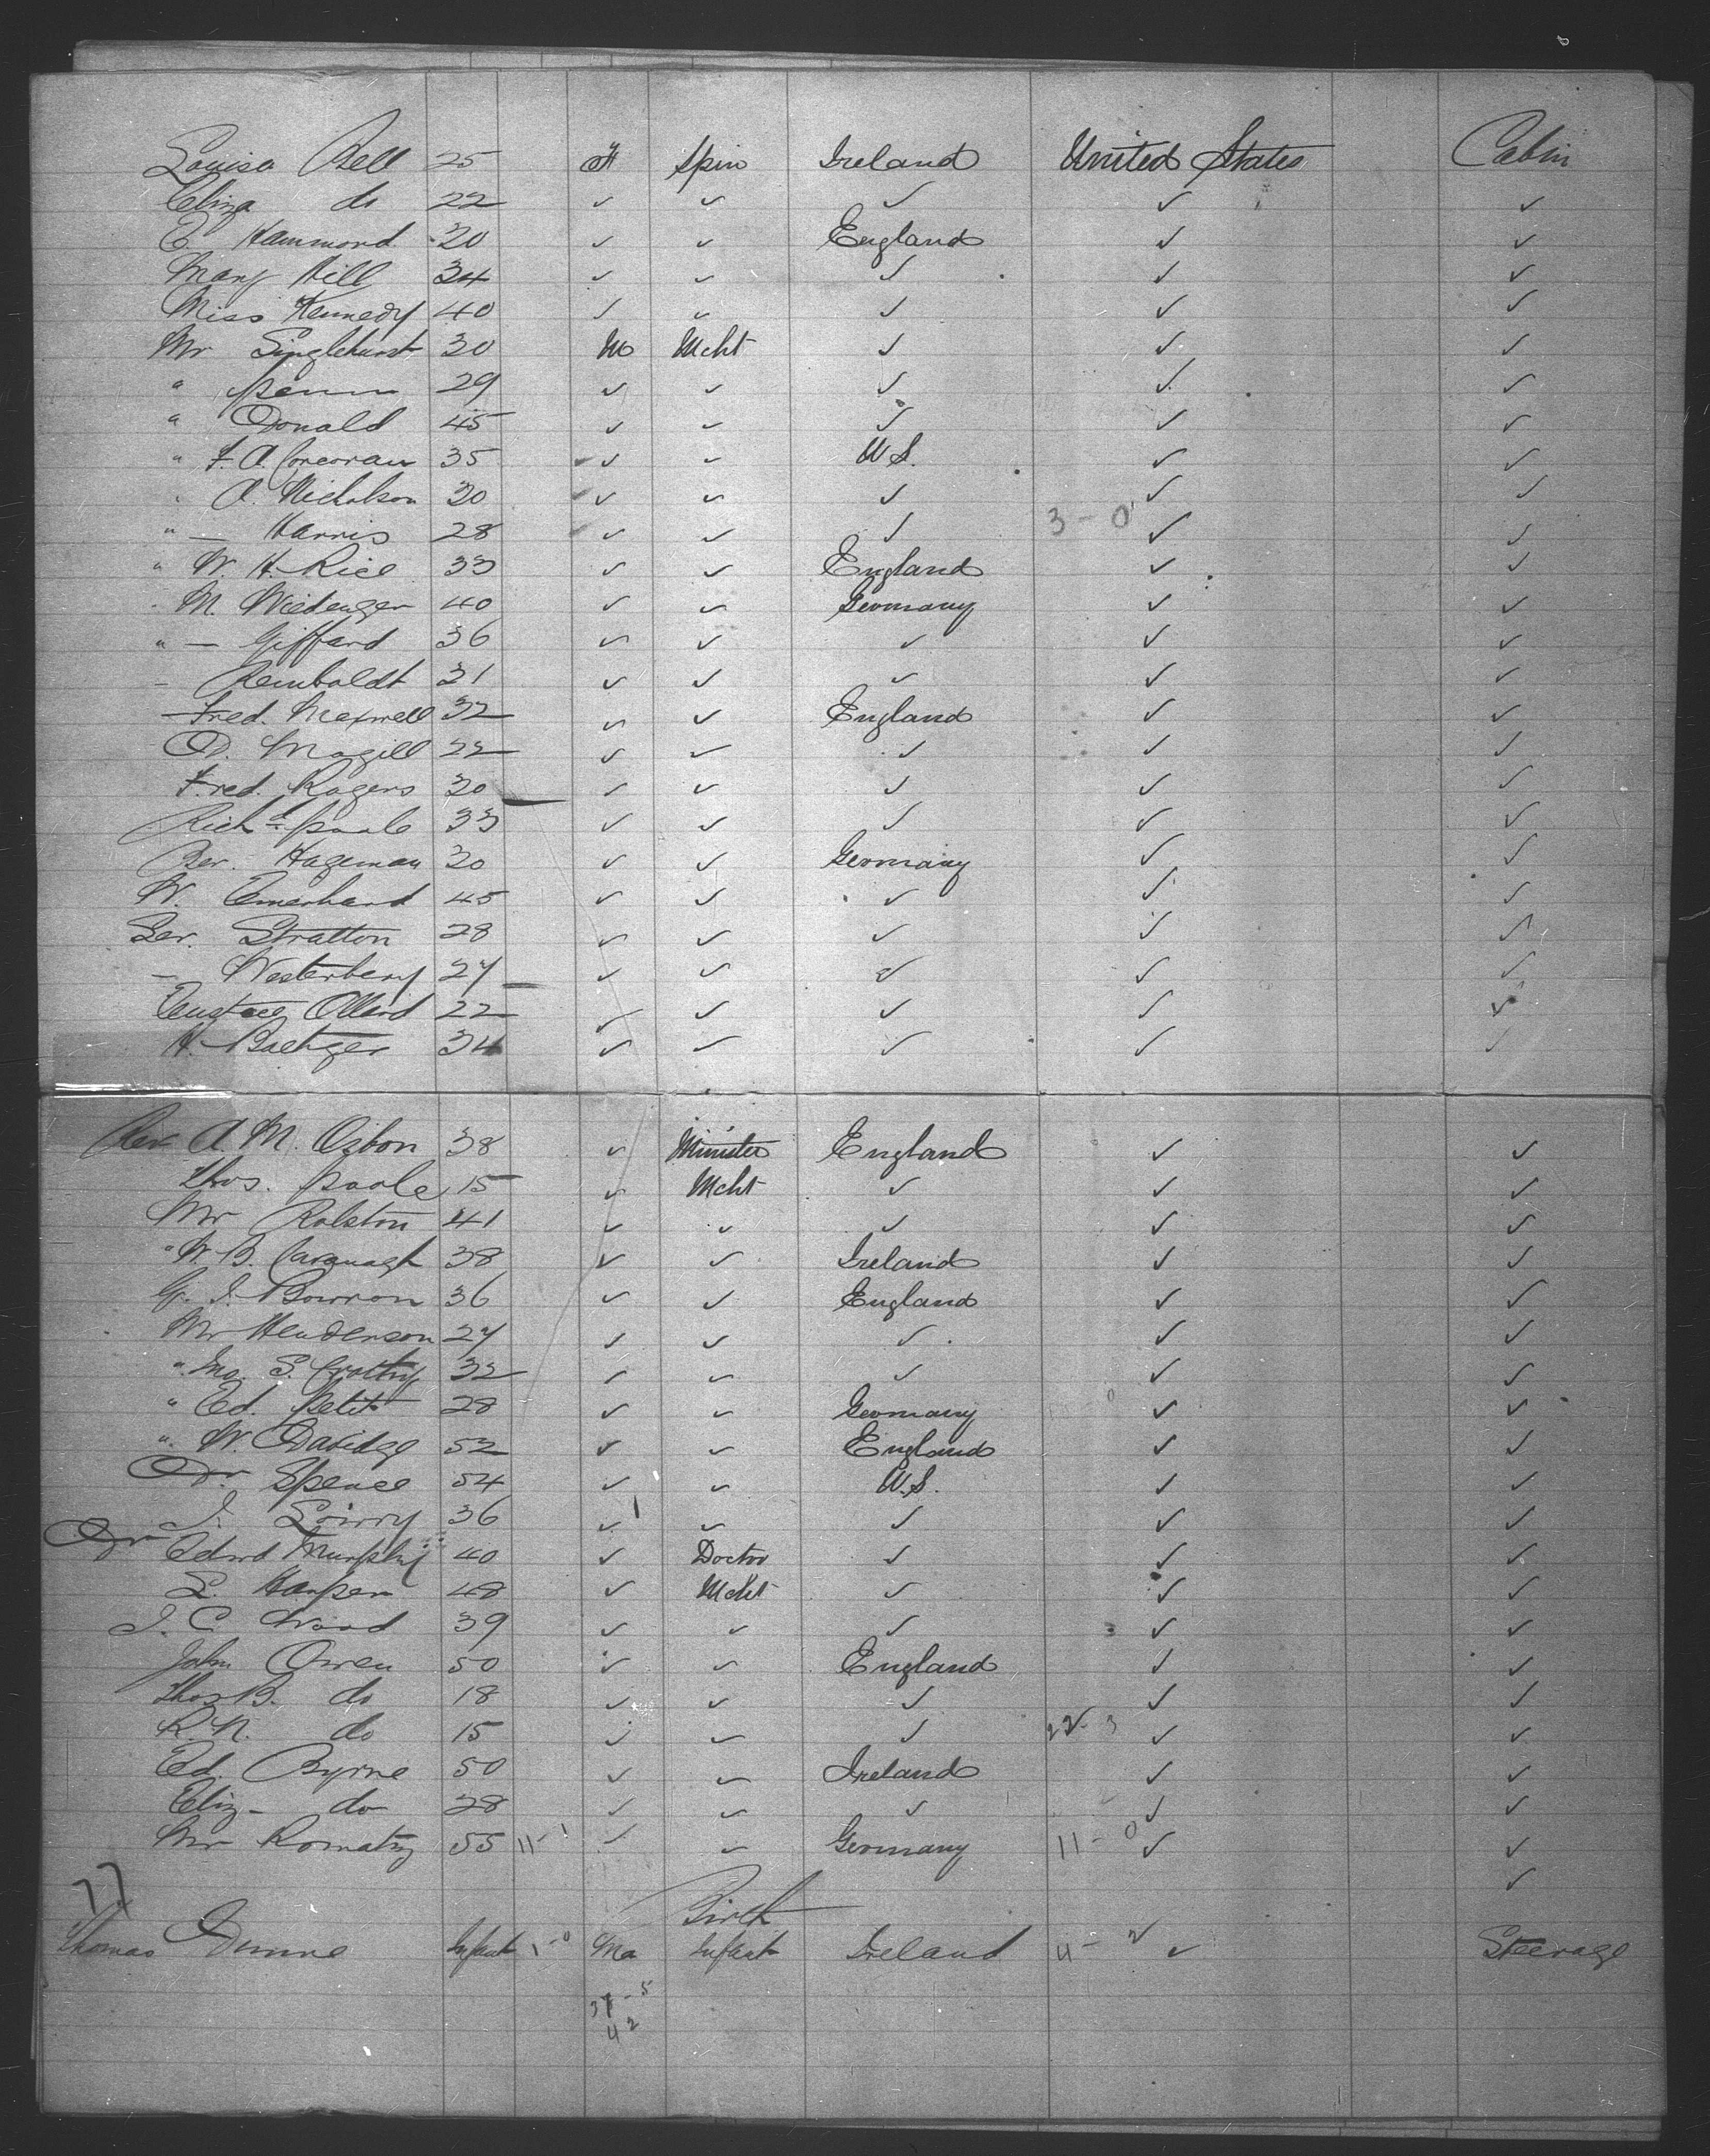 Louisa Bell 25 F Spin Ireland United States Cabin
Eliza do 22 ✓ ✓ ✓ ✓ ✓
E. Hammond 20 ✓ ✓ England ✓ ✓
Mary Hill 34 ✓ ✓ ✓ ✓ ✓
Miss Kennedy 40 ✓ ✓ ✓ ✓ ✓
Mr Singlehurst 30 M Mcht ✓ ✓ ✓
" Penn 29 ✓ ✓ ✓ ✓ ✓
" Donald 45 ✓ ✓ ✓ ✓ ✓
" F. A. Corcoran 35 ✓ ✓ U S. ✓ ✓
" A. Nicholson 30 ✓ ✓ ✓ ✓ ✓
" — Harris 28 ✓ ✓ ✓ 3 - 0 ✓ ✓
" W. H. Rice 33 ✓ ✓ England ✓ ✓
" M. Wiedenger 40 ✓ ✓ Germany ✓ ✓
" — Giffard 36 ✓ ✓ ✓ ✓ ✓
— Reinboldt 31 ✓ ✓ ✓ ✓ ✓
Fred. Maxwell 32 ✓ ✓ England ✓ ✓
D. Magill 22 ✓ ✓ ✓ ✓ ✓
Fred. Rogers 30 ✓ ✓ ✓ ✓ ✓
Richd Poole 33 ✓ ✓ ✓ ✓ ✓
Ber. Hageman 30 ✓ ✓ Germany ✓ ✓
W. Emerhard 45 ✓ ✓ ✓ ✓ ✓
Ser. Stratton 28 ✓ ✓ ✓ ✓ ✓
— Westerberg 27 ✓ ✓ ✓ ✓ ✓
Eustace Ollard 22 ✓ ✓ ✓ ✓ ✓
H. Baetzger 34 ✓ ✓ ✓ ✓ ✓
Rev A. M. Osbon 38 ✓ Minister England ✓ ✓
Thos. Poole 15 ✓ Mcht ✓ ✓ ✓
Mr Ralston 41 ✓ ✓ ✓ ✓ ✓
" W. B. Cavanagh 38 ✓ ✓ Ireland ✓ ✓
G. J. Bowron 36 ✓ ✓ England ✓ ✓
Mr Henderson 27 ✓ ✓ ✓ ✓ ✓
" Jno. S. Crotty 32 ✓ ✓ ✓ ✓ ✓
" Ed. Petit 28 ✓ ✓ Germany ✓ ✓
" W. Davidge 52 ✓ ✓ England ✓ ✓
Dr Spence 54 ✓ ✓ U.S. ✓ ✓
J. Lowry 36 ✓ ✓ ✓ ✓ ✓
Dr Edwd Murphy 40 ✓ Doctor ✓ ✓ ✓
S. Harper 48 ✓ Mcht ✓ ✓ ✓
J. C. Wood 39 ✓ ✓ ✓ ✓ ✓
John Owen 50 ✓ ✓ England ✓ ✓
Thos B. do 18 ✓ ✓ ✓ ✓ ✓
R. N. do 15 ✓ ✓ ✓ 22 - 3 ✓ ✓
Ed. Byrne 50 ✓ ✓ Ireland ✓ ✓
Eliz- do 28 ✓ ✓ ✓ ✓ ✓
Mr Romatz 55 11 - 1 ✓ ✓ Germany 11 - 0 ✓ ✓
77 ✓
Birth
Thomas Dunne Infant 1 - 0 Ma Infant Ireland 4 - 2 ✓ Steerage
37 - 5
42